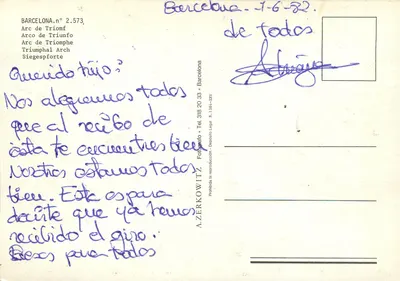 Barcelona. 1-6-82.
BARCELONA. n° 2.573
Arc de Triomf
Arco de Triunfo
Arc de Triomphe
Triumphal Arch
Siegespforte
Querido hijo:
Nos alegramos todos
que al recibo de
esta te encuentres bien
Nosotros estamos todos
bien. Esta es para
decirte que ya hemos
recibido el giro.
Besos para todos
de todos
A. ZERKOWITZ Fotógrafo - Tel. 318 20 33 - Barcelona